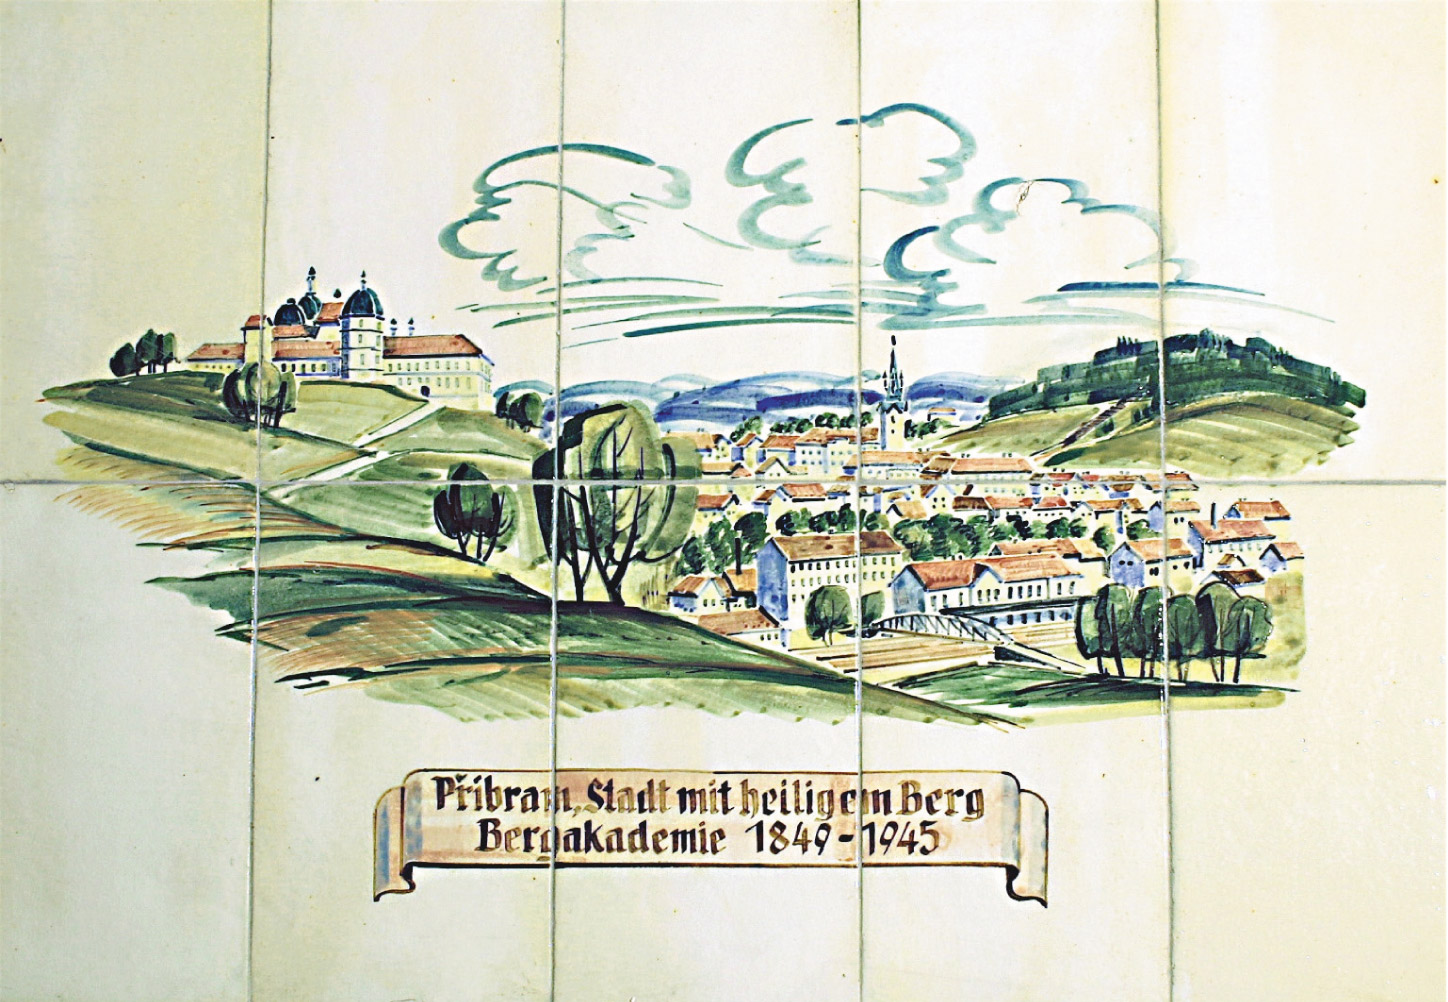 Přibram, Stadt mit heiligem Berg
Bergakademie 1849-1945